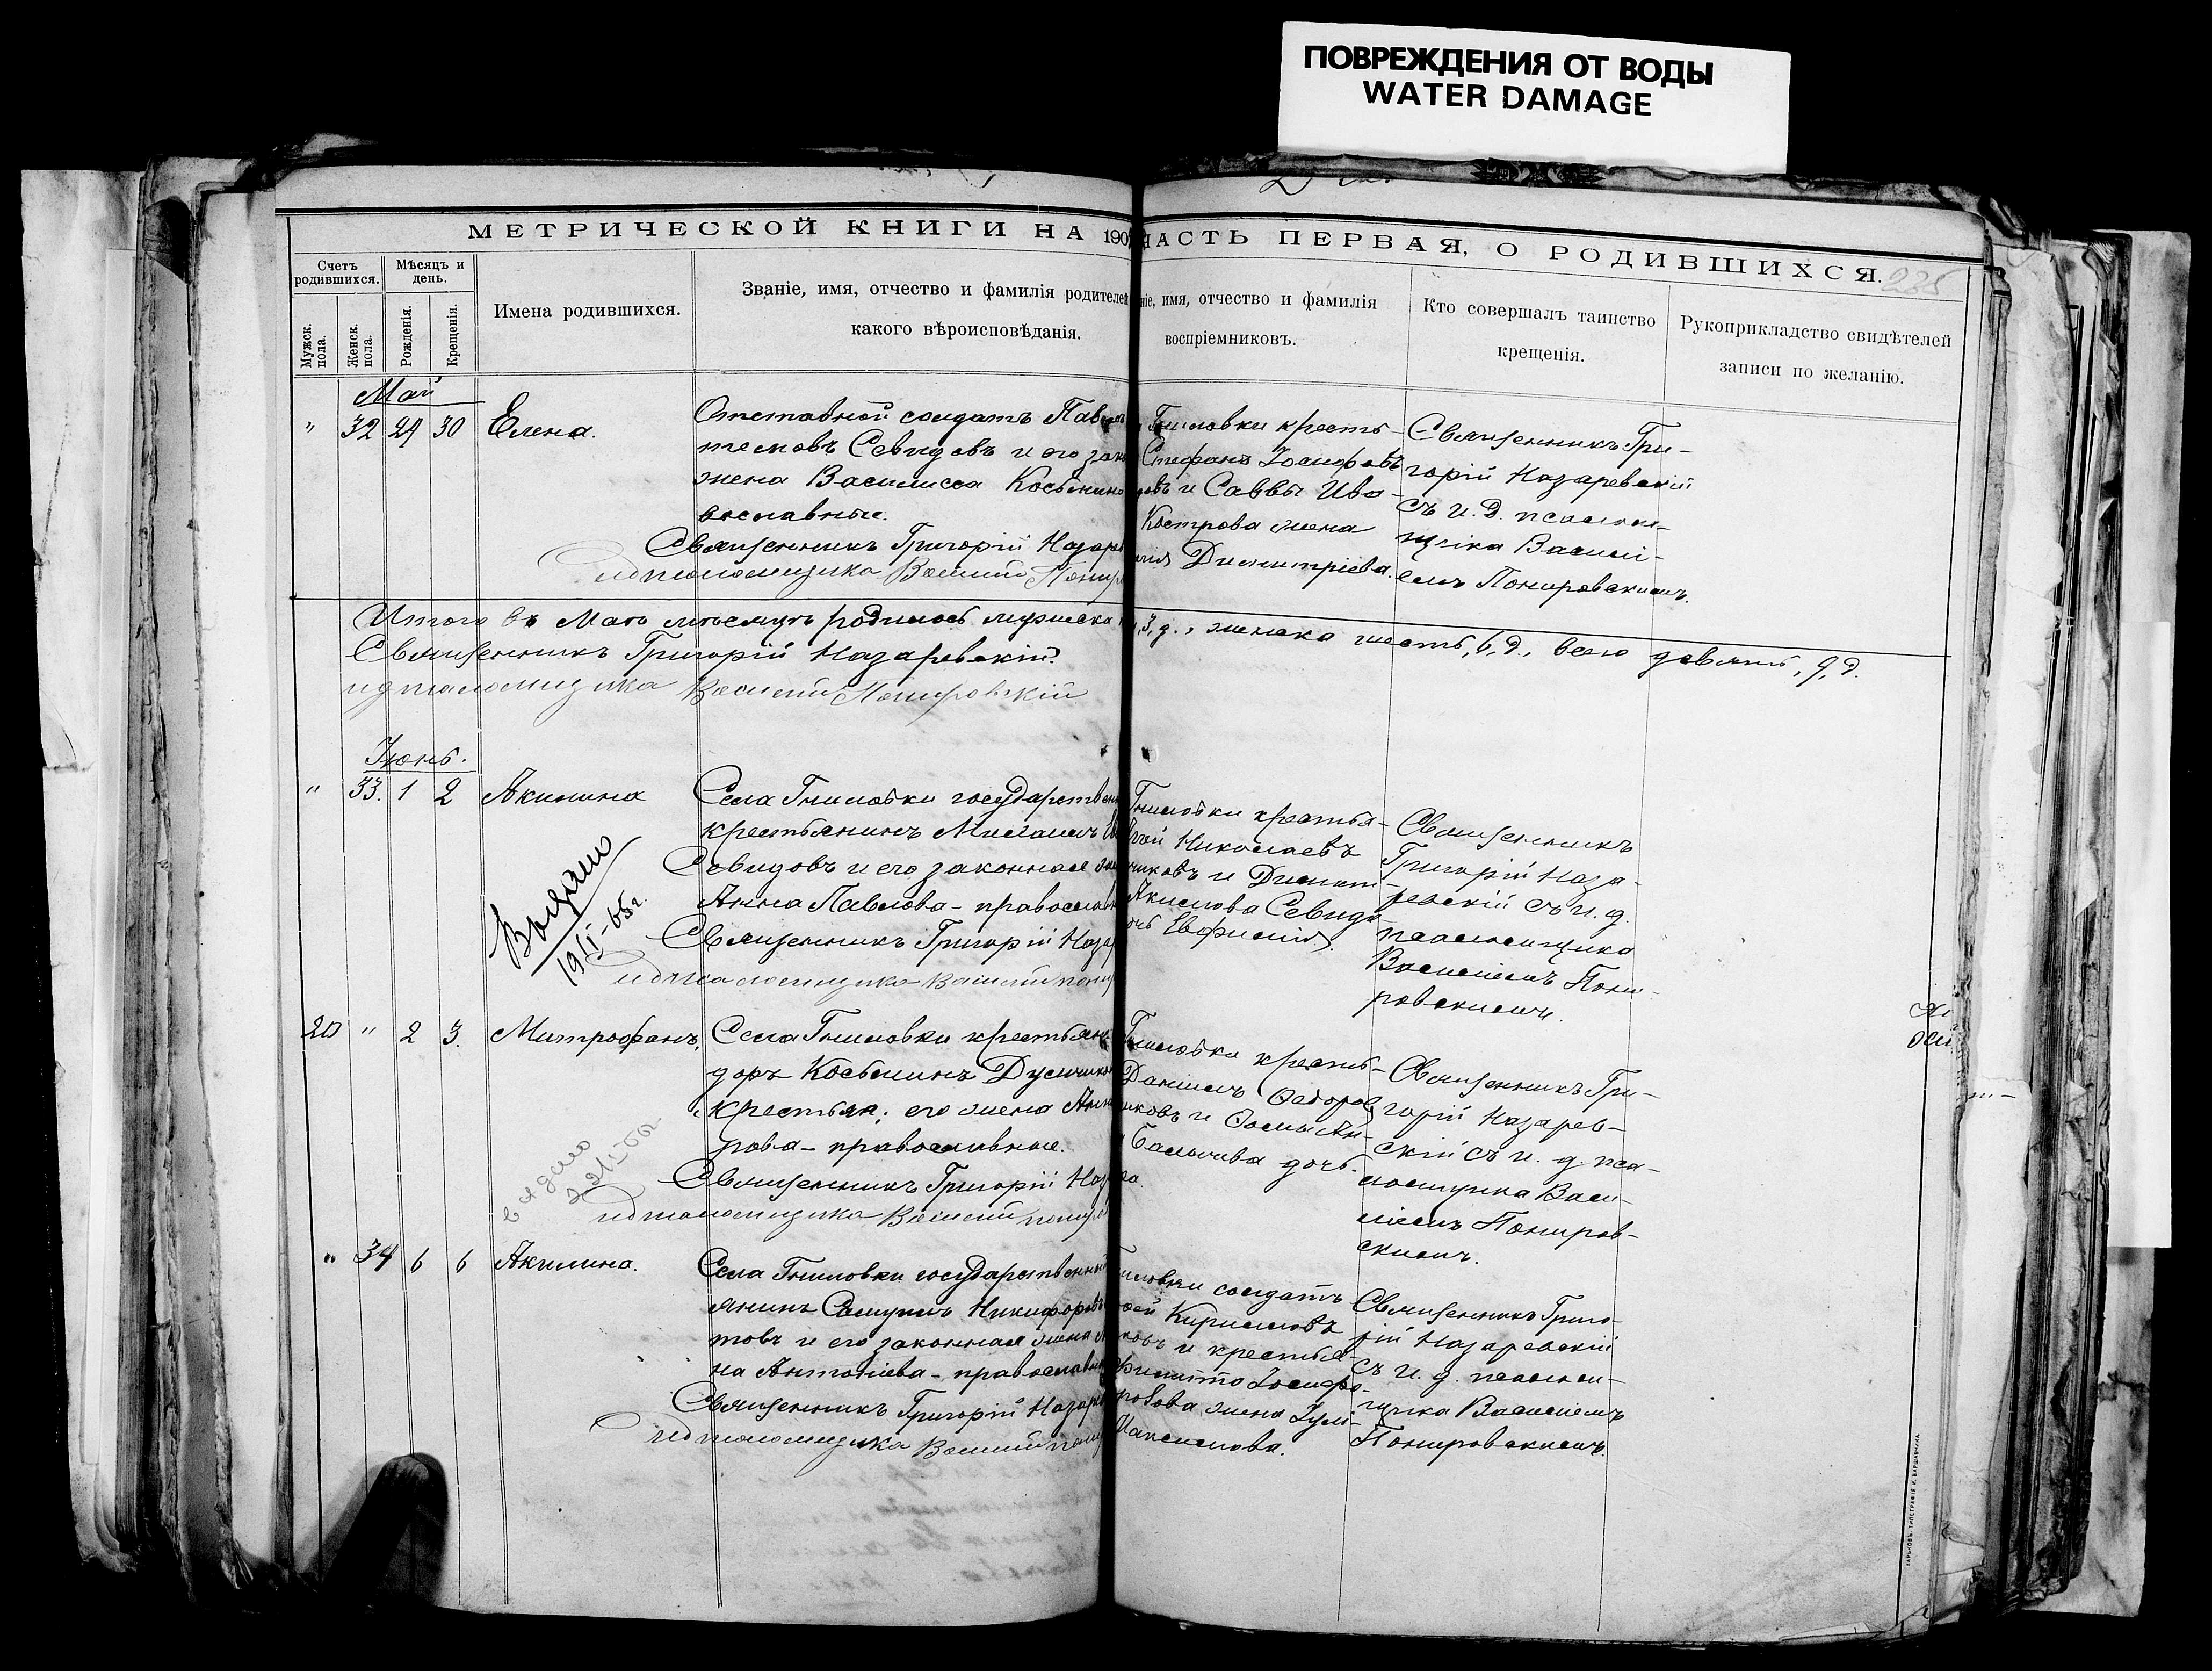 ПОВРЕЖДЕНИЯ ОТ ВОДЫ
WATER DAMAGE
МЕТРИЧЕСКОЙ КНИГИ НА 190
ЧАСТЬ ПЕРВАЯ, О РОДИВШИХСЯ.
Счетъ родившихся.
Мѣсяцъ и день.
Мужск. пола.
Женск. пола.
Рожденія.
Крещенія.
Имена родившихся.
Званіе, имя, отчество и фамилія родителей
какого вѣроисповѣданія.
ніе, имя, отчество и фамилія
воспріемниковъ.
Кто совершалъ таинство
крещенія.
Рукоприкладство свидѣтелей
записи по желанію.
Май
" 32 29 30 Елена.
Отставной солдатъ Павелъ
Севидовъ и его зако
жена Василисса Косьмина
вославные.
Священникъ Григорій Назарев
ид псаломщика Василий Понир
Гниловки кресть-
Стефанъ Іосифовъ
довъ и Саввы Ива-
Кострова жена
Димитріева.
Священникъ Гри-
горій Назаревскій
съ и. д. псалом-
щика Васи­лі-
емъ Понировскимъ.
Итого въ Маѣ мѣсяцѣ родилось мужеска
3, д., женска шесть, 6, д., всего девять, 9, д.
Священникъ Григорій Назаревскій.
ид псаломщика Василий Понировскій
Іюнь.
" 33. 1 2 Акилина
Выдано
Села Гниловки государствен
крестьянинъ Михаилъ
Севидовъ и его законная же
Анна Павлова - православн
Священникъ Григорій Назар
ид псаломщика Василий Понир
Гниловки крестья-
Николаевъ
чиковъ и Димит-
Акимова Севидо-
очь Евфимія.
Священникъ
Григорій Наза-
ревскій съ и. д.
псаломщика
Василіемъ Пони-
ровскимъ.
20 " 2 3. Митрофанъ.
Села Гниловки крестьян
доръ Косьминъ
крестьян; его жена Анн
рова - православные.
Священникъ Григорій Наз
ид псаломщика Василий Понир
Гниловки кресть-
Даніилъ Ѳедоров
иковъ и Ѳомы Ан-
дочь
Священникъ Гри-
горій Назарев-
скій съ и. д. пса-
ломщика Васи-
ліемъ Пониров-
скимъ.
" 34 6 6 Акилина.
Села Гниловки государственный
янинъ Самуилъ Никифоровъ
товъ и его законная жена
на Антоніева - православн
Священникъ Григорій Назарев
ид псаломщика Василий Понир
иловки солдатъ
Кирилловъ
ковъ и крестья-
Іосифо-
жена Іулі-
Максимова.
Священникъ Григо-
рій Назаревскій
съ и. д. псалом-
щика Василіемъ
Понировскимъ.